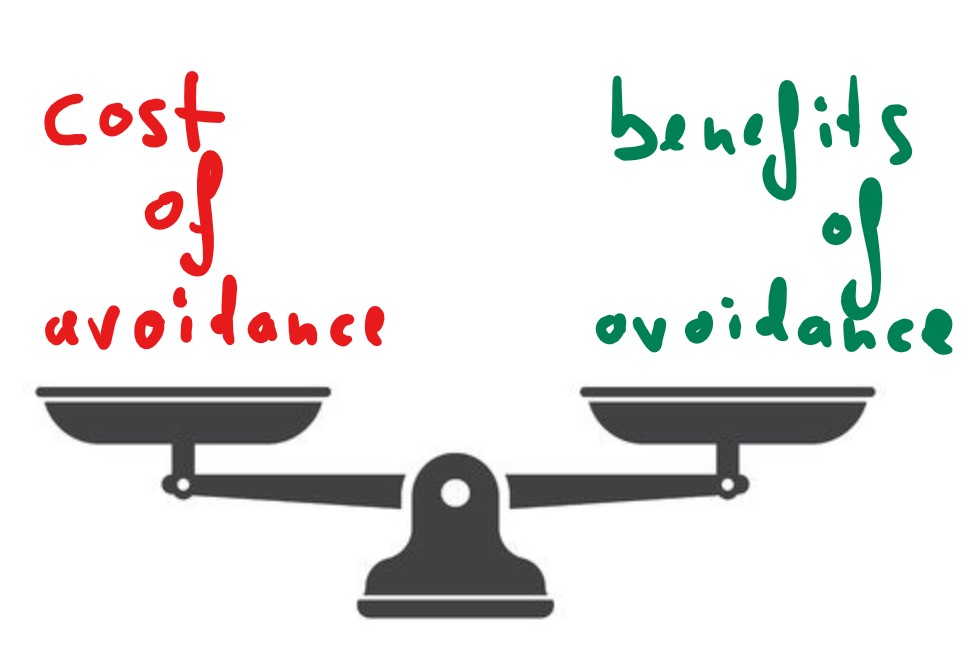 cost
of
avoidance
benefits
of
avoidance